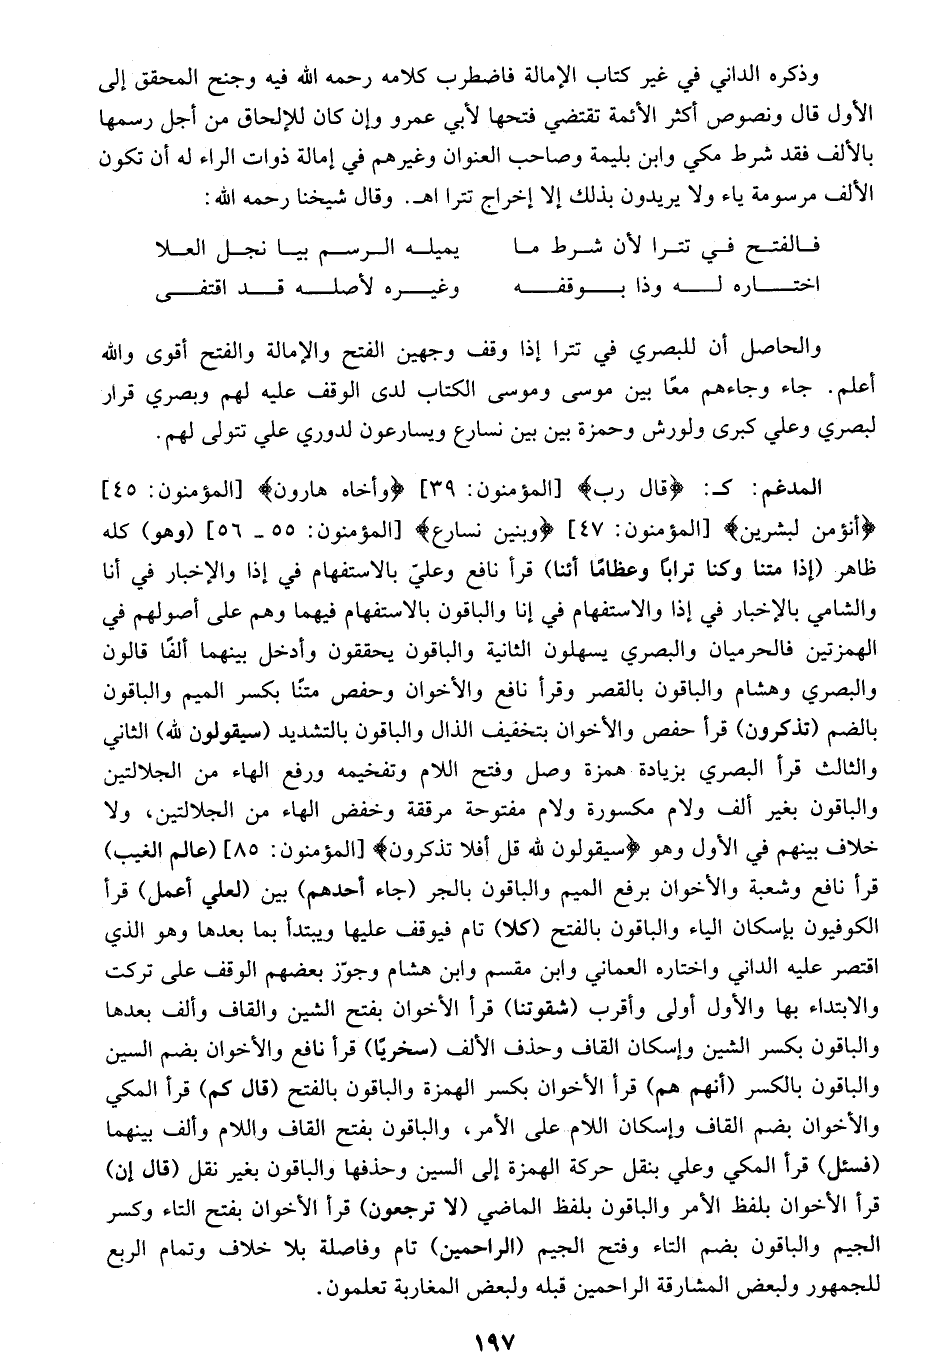 وذكره الداني في غير كتاب الإمالة فاضطرب كلامه رحمه الله فيه وجنح المحقق إلى
الأول قال ونصوص أكثر الأئمة تقتضي فتحها لأبي عمرو وإن كان للإلحاق من أجل رسمها
بالألف فقد شرط مكي وابن بليمة وصاحب العنوان وغيرهم في إمالة ذوات الراء له أن تكون
الألف مرسومة ياء ولا يريدون بذلك إلا إخراج تترا اهـ. وقال شيخنا رحمه الله:
فالفتح في تترا لأن شرط ما يميله الرسم بيا نجل العلا
اختاره له وذا بوقفه وغيره لأصله قد اقتفى
والحاصل أن للبصري في تترا إذا وقف وجهين الفتح والإمالة والفتح أقوى والله
أعلم. جاء وجاءهم معًا بين موسى وموسى الكتاب لدى الوقف عليه لهم وبصري قرار
لبصري وعلي كبرى ولورش وحمزة بين بين نسارع ويسارعون لدوري علي تتولى لهم.
المدغم: كـ: ﴿قال رب﴾ [المؤمنون: ٣٩] ﴿وأخاه هارون﴾ [المؤمنون: ٤٥]
﴿أنؤمن لبشرين﴾ [المؤمنون: ٤٧] ﴿وبنين نسارع﴾ [المؤمنون: ٥٥ ـ ٥٦] (وهو) كله
ظاهر (إذا متنا وكنا ترابًا وعظامًا أئنا) قرأ نافع وعليّ بالاستفهام في إذا والإخبار في أنا
والشامي بالإخبار في إذا والاستفهام في إنا والباقون بالاستفهام فيهما وهم على أصولهم في
الهمزتين فالحرميان والبصري يسهلون الثانية والباقون يحققون وأدخل بينهما ألفًا قالون
والبصري وهشام والباقون بالقصر وقرأ نافع والأخوان وحفص متنًا بكسر الميم والباقون
بالضم (تذكرون) قرأ حفص والأخوان بتخفيف الذال والباقون بالتشديد (سيقولون لله) الثاني
والثالث قرأ البصري بزيادة همزة وصل وفتح اللام وتفخيمه ورفع الهاء من الجلالتين
والباقون بغير ألف ولام مكسورة ولام مفتوحة مرققة وخفض الهاء من الجلالتين، ولا
خلاف بينهم في الأول وهو ﴿سيقولون لله قل أفلا تذكرون﴾ [المؤمنون: ٨٥] (عالم الغيب)
قرأ نافع وشعبة والأخوان برفع الميم والباقون بالجر (جاء أحدهم) بين (لعلي أعمل) قرأ
الكوفيون بإسكان الياء والباقون بالفتح (كلا) تام فيوقف عليها ويبتدأ بما بعدها وهو الذي
اقتصر عليه الداني واختاره العماني وابن مقسم وابن هشام وجوّز بعضهم الوقف على تركت
والابتداء بها والأول أولى وأقرب (شقوتنا) قرأ الأخوان بفتح الشين والقاف وألف بعدها
والباقون بكسر الشين وإسكان القاف وحذف الألف (سخريًا) قرأ نافع والأخوان بضم السين
والباقون بالكسر (أنهم هم) قرأ الأخوان بكسر الهمزة والباقون بالفتح (قال كم) قرأ المكي
والأخوان بضم القاف وإسكان اللام على الأمر، والباقون بفتح القاف واللام وألف بينهما
(فسئل) قرأ المكي وعلي بنقل حركة الهمزة إلى السين وحذفها والباقون بغير نقل (قال إن)
قرأ الأخوان بلفظ الأمر والباقون بلفظ الماضي (لا ترجعون) قرأ الأخوان بفتح التاء وكسر
الجيم والباقون بضم التاء وفتح الجيم (الراحمين) تام وفاصلة بلا خلاف وتمام الربع
للجمهور ولبعض المشارقة الراحمين قبله ولبعض المغاربة تعلمون.
١٩٧